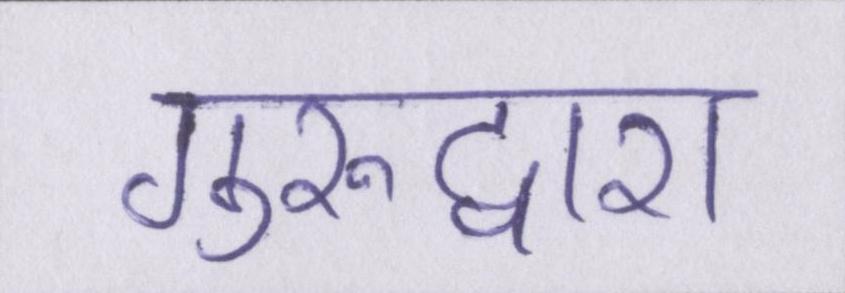 गुरुद्वारा